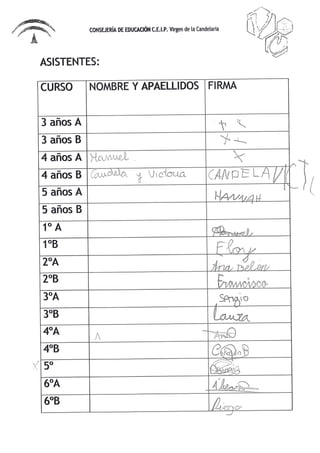 CONSEJERÍA DE EDUCACIÓN C.E.I.P. Virgen de la Candelaria
ASISTENTES:
CURSO NOMBRE Y APAELLIDOS FIRMA
3 años A
3 años B
4 años A Manuel
4 años B Candela y Victoria CANDELA
5 años A HANNAH
5 años B
1º A Manuel
1ºB Eloy
2ºA Ana Belen
2ºB Francisco
3ºA Sergio
3ºB Laura
4ºA
4ºB
5º
6ºA
6ºB